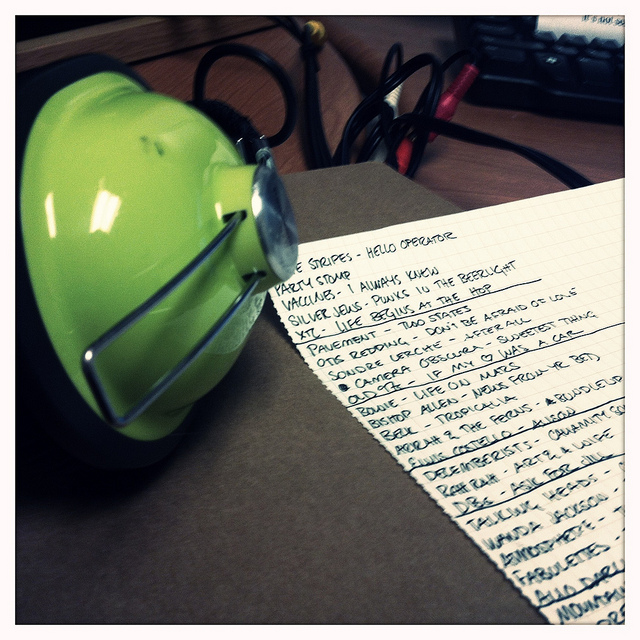 E STRIPES - HELLO OPERATOR
PARTY STOMP
VACCINES - I ALWAYS KNEW
SILVER JEWS - PUNKS IN THE BEERLIGHT
XTC - LIFE BEGINS AT THE HOP
PAVEMENT - TWO STATES
OTIS REDDING - DON'T BE AFRAID OF LOVE
SONDRE LERCHE - AFTER ALL
CAMERA OBSCURA - SWEETEST THING
OLD 97s - IF MY ♡ WAS A CAR
BOWIE - LIFE ON MARS
BISHOP ALLEN - NEWS FROM YR BED
BECK - TROPICALIA
ARRAH & THE FERNS -
ELVIS COSTELLO - ALISON
DECEMBERISTS - CALAMITY SO
RAH RAH - ARTZ & WIFE
DBs - ASK FOR JILL
TALKING HEADS -
WANDA JACKSON -
ATMOSPHERE -
FABULETTES -
ALLO DARL
MOUNTAI